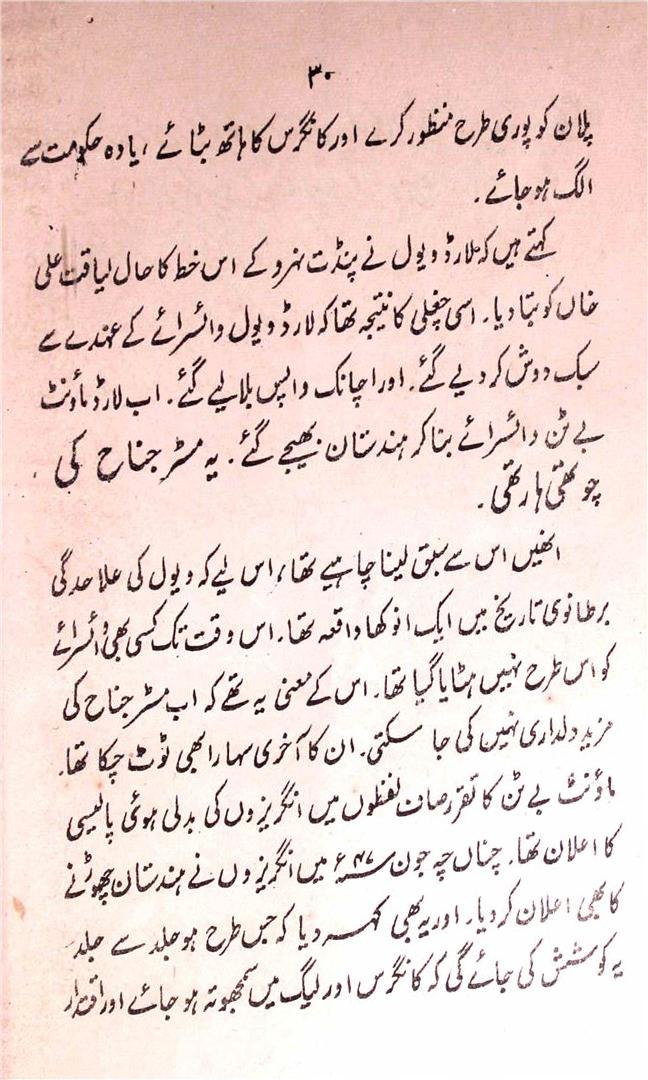 ۳۰
پلان کو پوری طرح منظور کرے اور کانگرس کا ہاتھ بٹائے ، یا وہ حکومت سے
الگ ہو جائے ۔
کہتے ہیں کہ لارڈ ویول نے پنڈت نہرو کے اس خط کا حال لیاقت علی
خاں کو بتا دیا۔ اسی چغلی کا نتیجہ تھا کہ لارڈ ویول وائسرائے کے عہدے سے
سبک دوش کر دیے گئے۔ اور اچانک واپس بلا لیے گئے۔ اب لارڈ ماؤنٹ
بے ٹن وائسرائے بنا کر ہندستان بھیجے گئے۔ یہ مسٹر جناح کی
چوتھی ہار تھی ۔
انھیں اس سے سبق لینا چاہیے تھا، اس لیے کہ ویول کی علاحدگی
برطانوی تاریخ میں ایک انوکھا واقعہ تھا۔ اس وقت تک کسی بھی وائسرائے
کو اس طرح نہیں ہٹایا گیا تھا۔ اس کے معنی یہ تھے کہ اب مسٹر جناح کی
مزید دلداری نہیں کی جا سکتی۔ ان کا آخری سہارا بھی ٹوٹ چکا تھا۔
ماؤنٹ بے ٹن کا تقرر صاف لفظوں میں انگریزوں کی بدلی ہوئی پالیسی
کا اعلان تھا۔ چناں چہ جون ۴۷ء میں انگریزوں نے ہندستان چھوڑنے
کا بھی اعلان کر دیا۔ اور یہ بھی کہہ دیا کہ جس طرح ہو جلد سے جلد
یہ کوشش کی جائے گی کہ کانگرس اور لیگ میں سمجھوتہ ہو جائے اور اقتدار